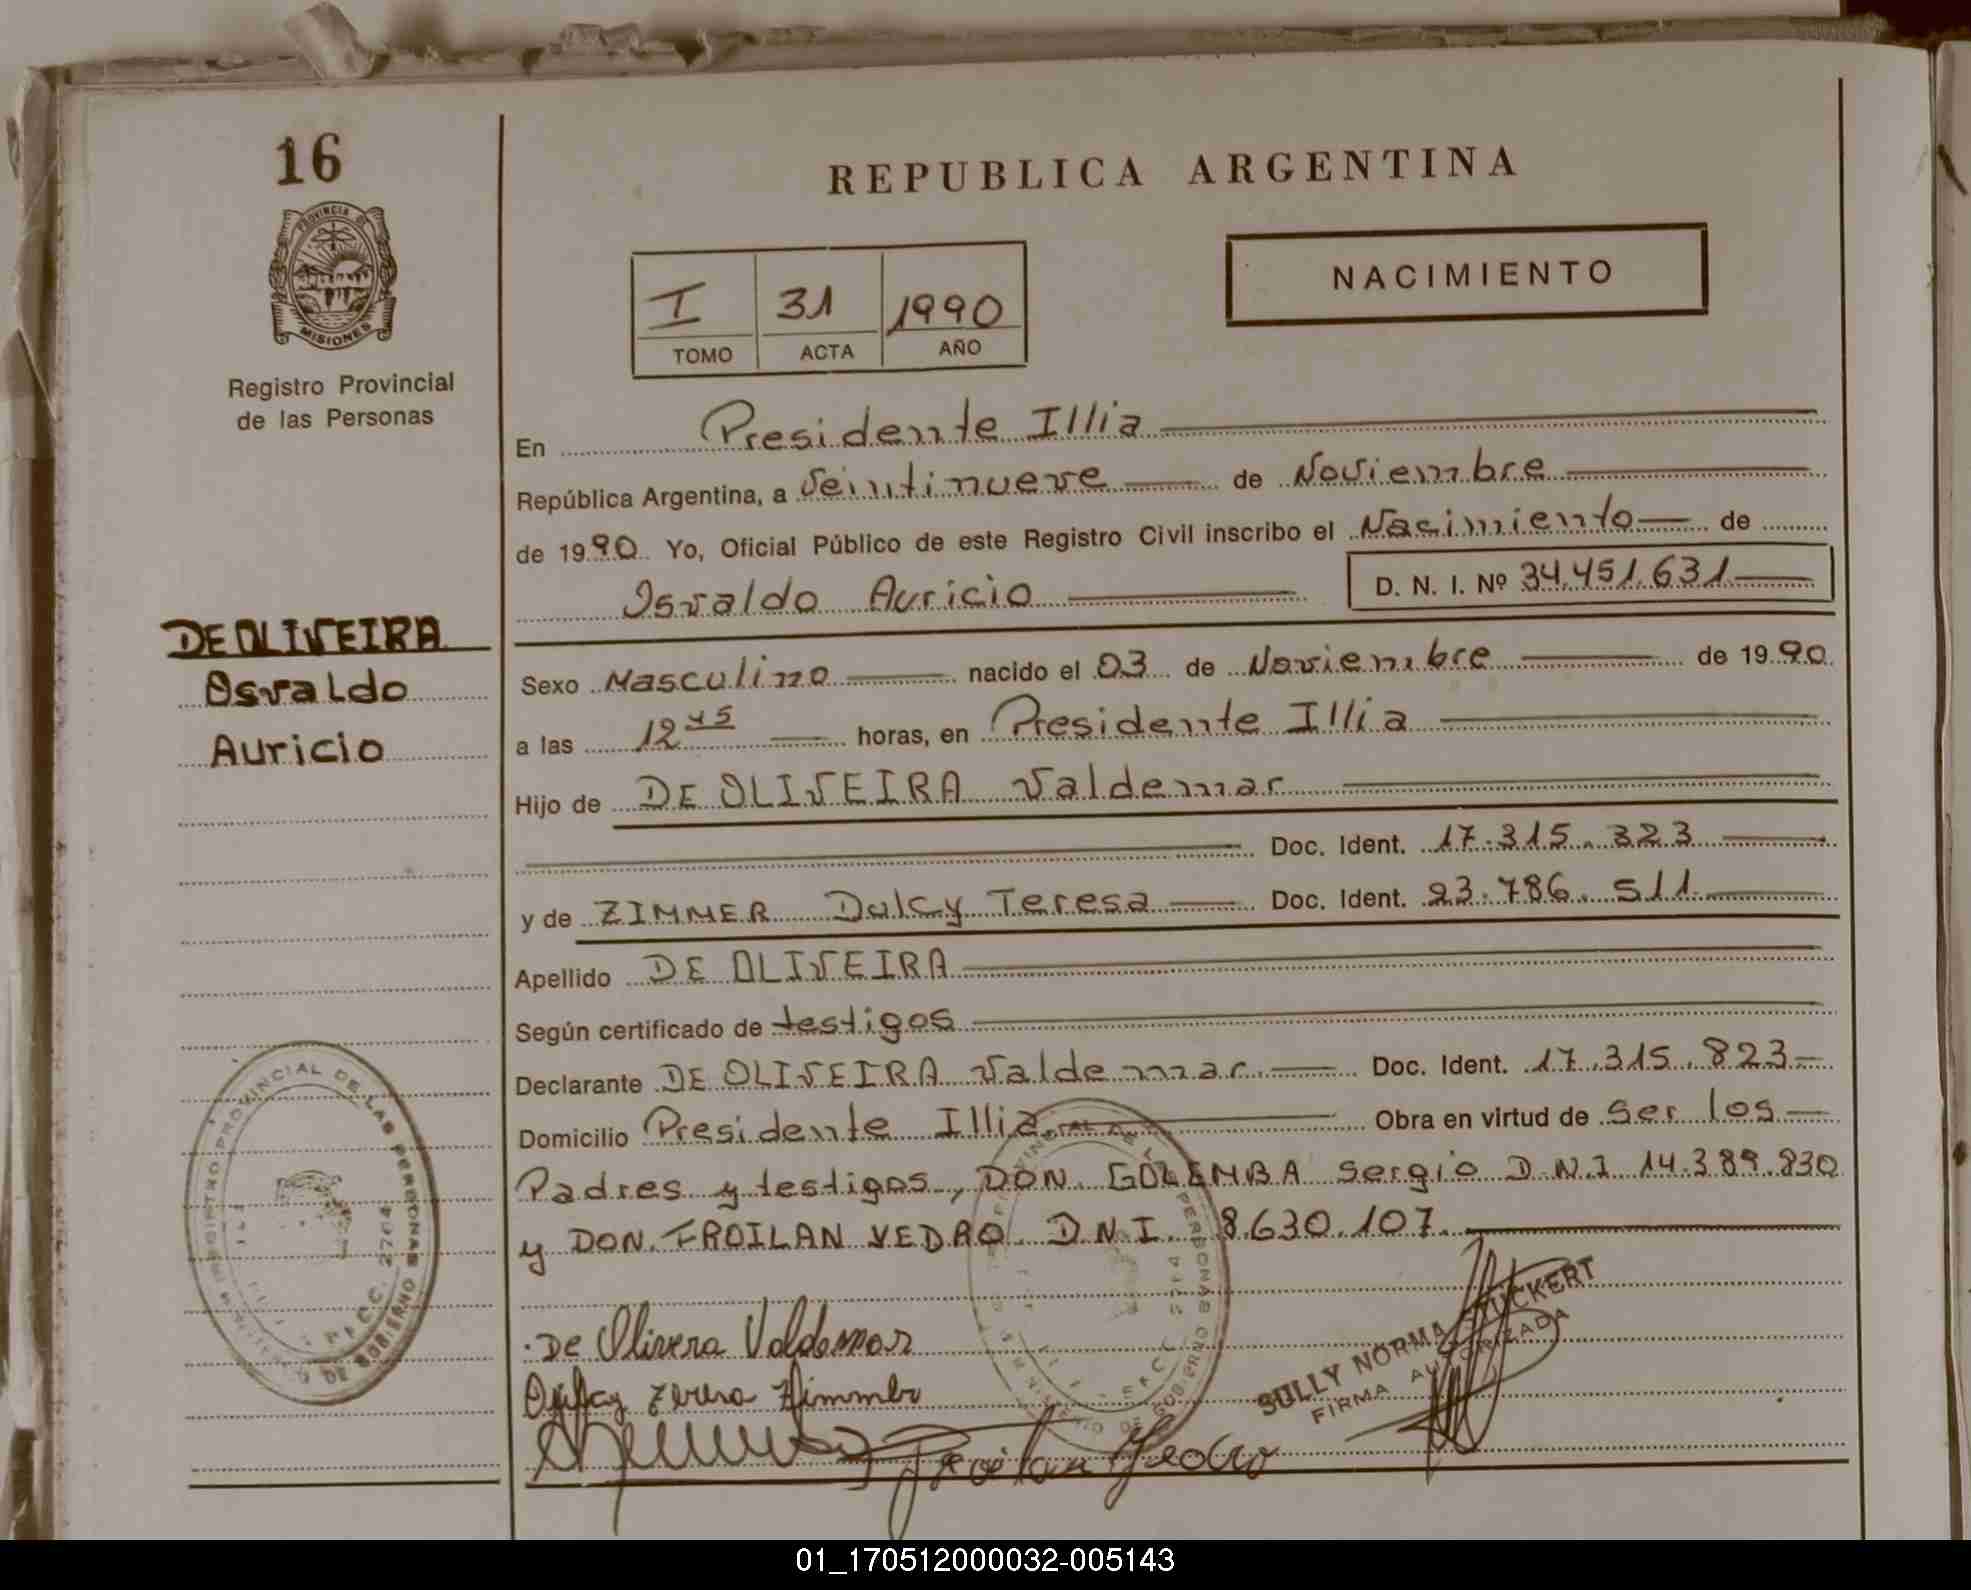 16
PROVINCIA DE
MISIONES
Registro Provincial
de las Personas
REPUBLICA ARGENTINA
NACIMIENTO
I 31 1990
TOMO ACTA AÑO
En Presidente Illia
República Argentina, a Veintinueve de Noviembre
de 1990 Yo, Oficial Público de este Registro Civil inscribo el Nacimiento de
Osvaldo Auricio D. N. I. Nº 34.451.631
DE OLIVEIRA
Osvaldo
Auricio
Sexo Masculino nacido el 03 de Noviembre de 1990
a las 12 45 horas, en Presidente Illia
Hijo de DE OLIVEIRA Valdemar
Doc. Ident. 17.315.323
y de ZIMMER Dulcy Teresa Doc. Ident. 23.786.511
Apellido DE OLIVEIRA
Según certificado de testigos
Declarante DE OLIVEIRA Valdemar Doc. Ident. 17.315.823
Domicilio Presidente Illia Obra en virtud de ser los
Padres y testigos, DON. GOLEMBA Sergio D.N.I 14.389.830
y DON. FROILAN VEDRO D.N.I. 8.630.107
REGISTRO PROVINCIAL DE LAS PERSONAS
DE GOBIERNO
2764
De Olivera Valdemar
SULLY NORMA STUCKERT
FIRMA AUTORIZADA
01_170512000032-005143